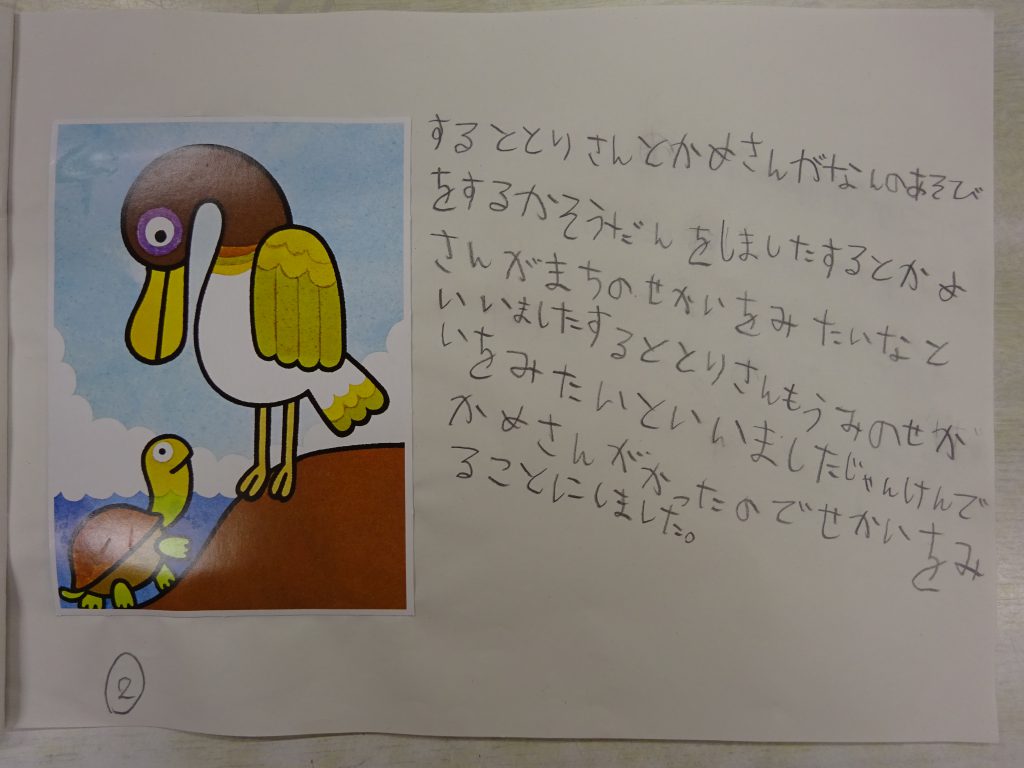 するととりさんとかめさんがなんのあそび
をするかそうだんをしましたするとかめ
さんがまちのせかいをみたいなと
いいましたするととりさんもうみのせか
いをみたいといいましたじゃんけんで
かめさんがかったのでせかいをみ
ることにしました。
②